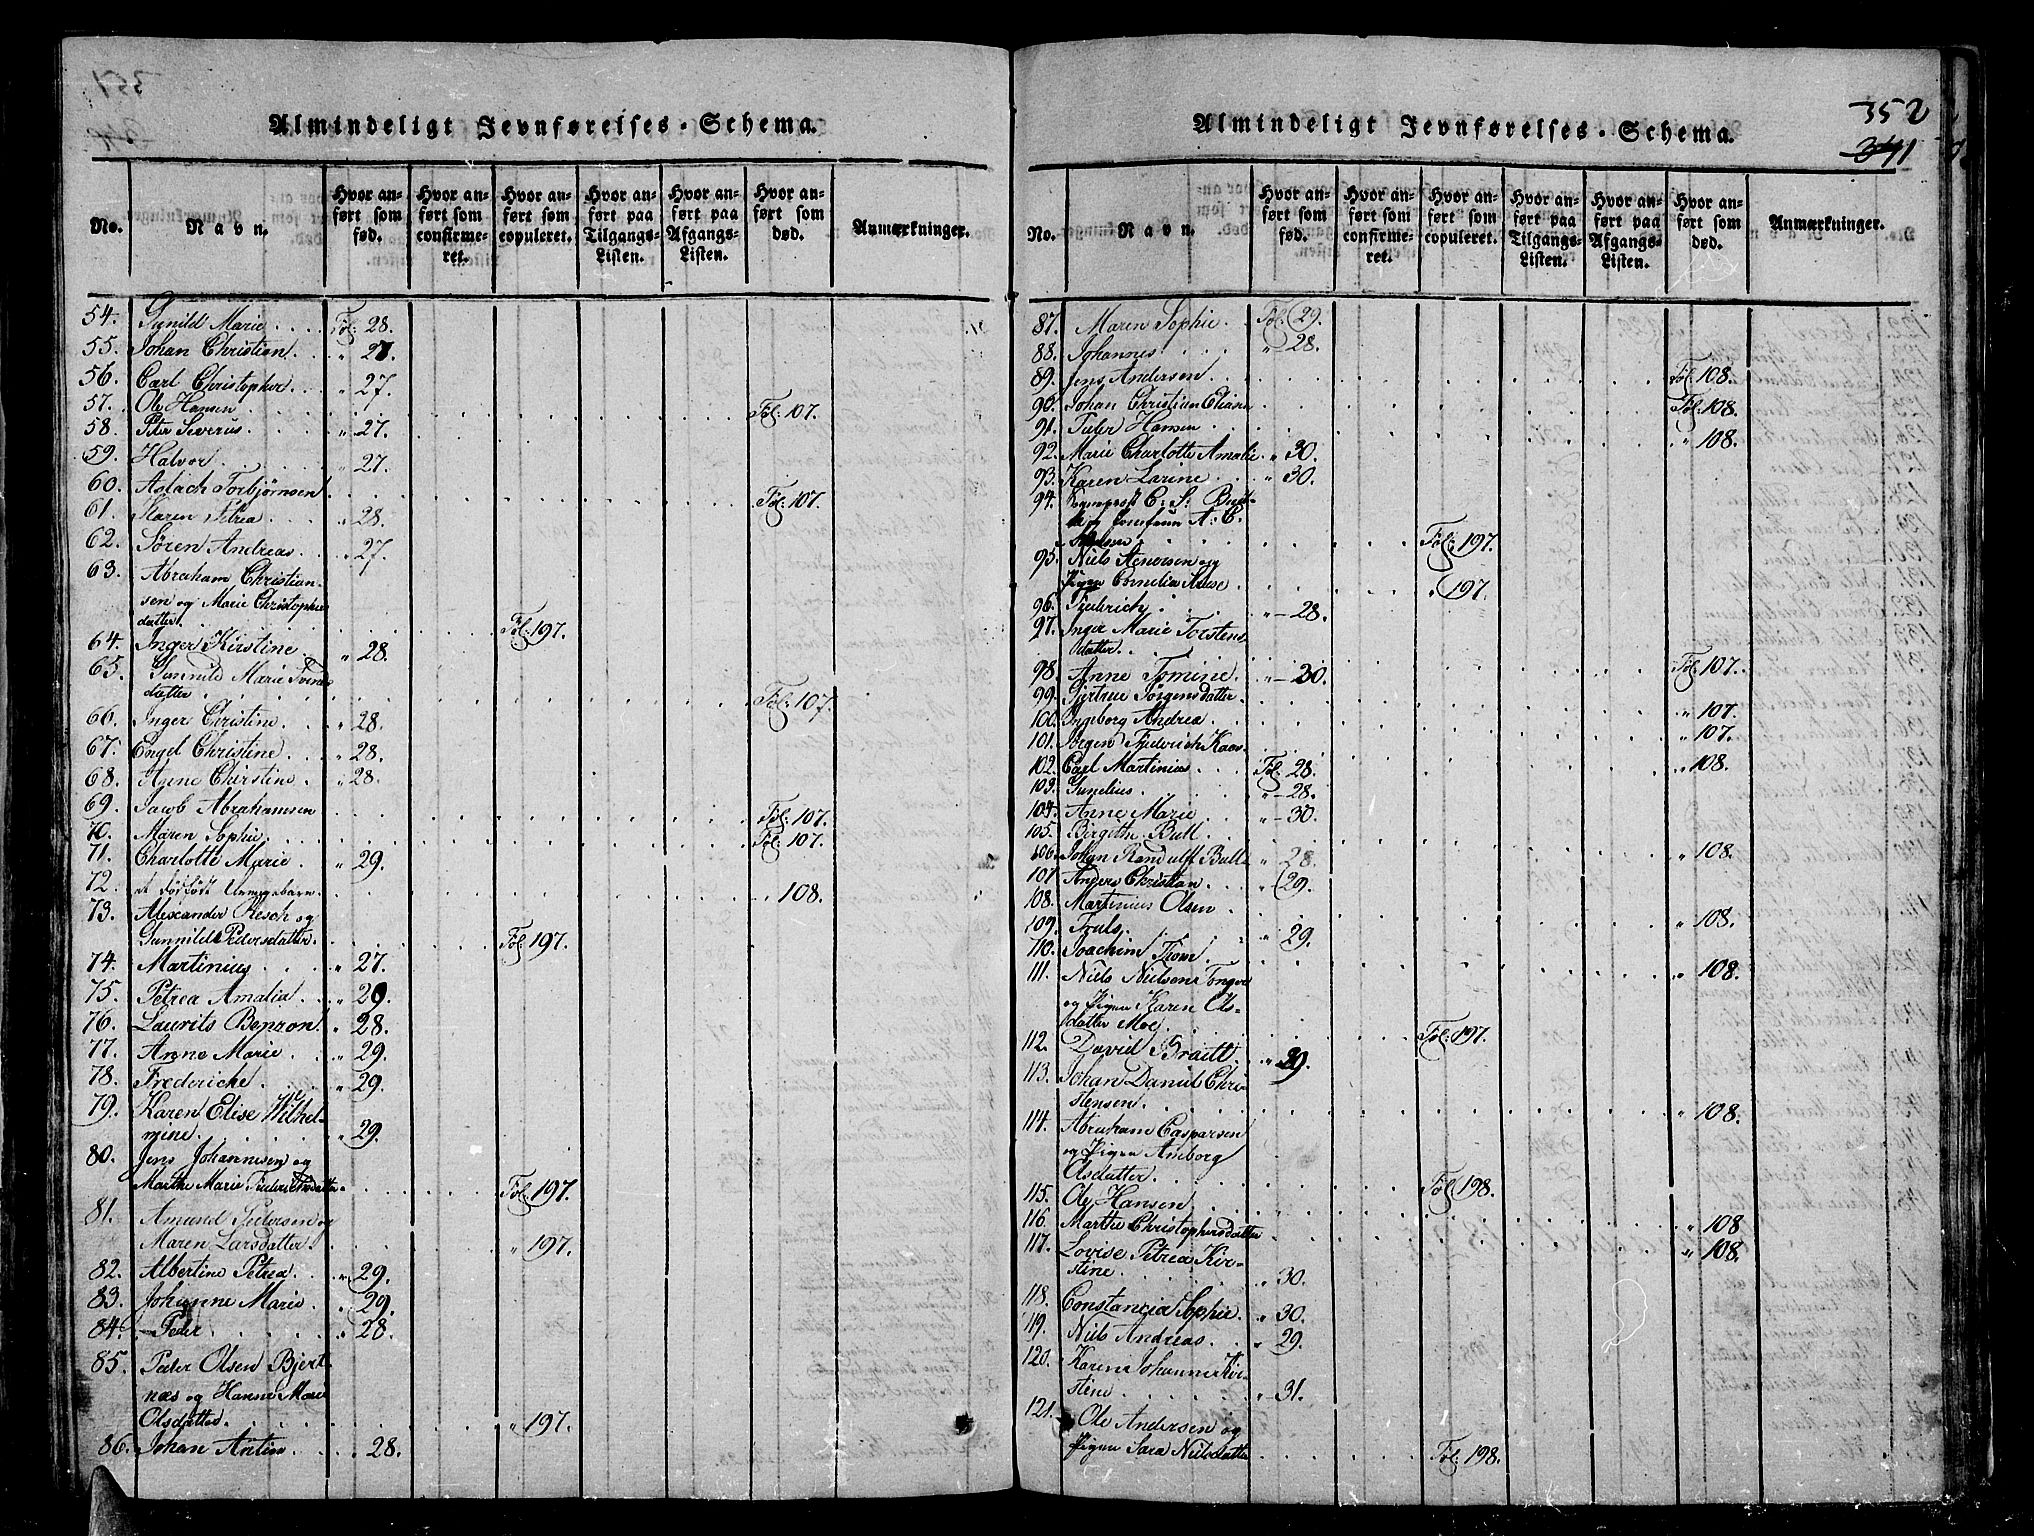 351
Almindeligt Jevnførelses-Schema.
No.
Navn.
Hvor anført som fød.
Hvor anført som confirmeret.
Hvor anført som copuleret.
Hvor anført paa Tilgangs-Listen.
Hvor anført paa Afgangs-Listen.
Hvor anført som død.
Anmærkninger.
54. Gunild Marie . . . . Fol: 28.
55. Johan Christian . . . " 28.
56. Carl Christopher . . . " 27.
57. Ole Hansen . . . Fol: 107.
58. Peter Severus . . . " 27.
59. Halvor . . . " 27.
60. Aslach Torbjørnsen . . . Fol: 107.
61. Karen Petrea . . . " 28.
62. Søren Andreas . . . " 27.
63. Abraham Christian-
sen og Marie Christophers
datter . . . Fol: 197.
64. Inger Kirstine . . . " 28.
65. Gunnild Marie
datter . . . Fol: 107.
66. Inger Christine . . . " 28.
67. Engel Christine . . . " 28.
68. Anne Chirstine . . . " 28.
69. Jacob Abrahamsen . . . Fol: 107.
70. Maren Sophie . . . Fol: 107.
71. Charlotte Marie . . . " 29.
72. et dødfødt Unægtebarn . . . 108.
73. Alexander Resch og
Gunnild Pedersdatter . . . Fol: 197.
74. Martinius . . . " 27.
75. Petrea Amalia . . . " 29.
76. Laurits Benzon . . . " 28.
77. Anne Marie . . . " 29.
78. Frederiche . . . " 29.
79. Karen Elise Wilhel-
mine . . . " 29.
80. Jens Johannesen og
Marthe Marie Frederiksdatter . . . Fol: 197.
81. Amund Pedersen og
Maren Larsdatter . . . " 197.
82. Albertine Petrea . . . " 29.
83. Johanne Marie . . . " 29.
84. Peder . . . " 28.
85. Peder Olsen Bjert-
næs og Hanne Marie
Olsdatter . . . " 197.
86. Johan Anton . . . 28.
352
341
Almindeligt Jevnførelses-Schema.
No.
Navn.
Hvor anført som fød.
Hvor anført som confirmeret.
Hvor anført som copuleret.
Hvor anført paa Tilgangs-Listen.
Hvor anført paa Afgangs-Listen.
Hvor anført som død.
Anmærkninger.
87. Maren Sophie . . . Fol: 29.
88. Johannes . . . " 28.
89. Jens Andersen . . . Fol: 108.
90. Johan Christian . . . Fol: 108.
91. Peder Hansen . . . " 108.
92. Marie Charlotte Amalie . . . " 30.
93. Karen Larine . . . " 30.
94. C: S: Bull
og Jomfrue A: C.
. . . Fol: 197.
95. Niels Asmorsen og
Pigen Cornelia . . . " 197.
96. Frederich . . . " 28.
97. Inger Marie Torstens-
datter . . . Fol: 107.
98. Anne Tomine . . . " 30.
99. Gjertrue Jørgensdatter . . . " 107.
100. Ingeborg Andrea . . . " 107.
101. Jørgen Frederich Kaas . . . " 108.
102. Carl Martinius . . . Fol: 28.
103. Gunelius . . . " 28.
104. Anne Marie . . . " 30.
105. Birgithe Bull . . . " 108.
106. Johan Randulff Bull . . . " 28.
107. Anders Christian . . . " 29.
108. Martinius Olsen . . . " 108.
109. Truls . . . " 29.
110. Joachim Trom . . . " 108.
111. Niels Nielsen Tonger
og Pigen Karen Ols-
datter Moe . . . Fol: 197.
112. David Braitt . . . " 29.
113. Johan Daniel Chri-
stensen . . . " 108.
114. Abraham Casparsen
og Pigen Amborg
Olsdatter . . . Fol: 198.
115. Ole Hansen . . . " 108
116. Marthe Christophersdatter . . . " 108
117. Lovise Petrea Kir-
stine . . . " 30.
118. Constancia Sophie . . . " 30.
119. Niels Andreas . . . " 29.
120. Karen Johanne Kir-
stene . . . " 31.
121. Ole Andersen og
Pigen Sara Nielsdatter . . . Fol: 198.